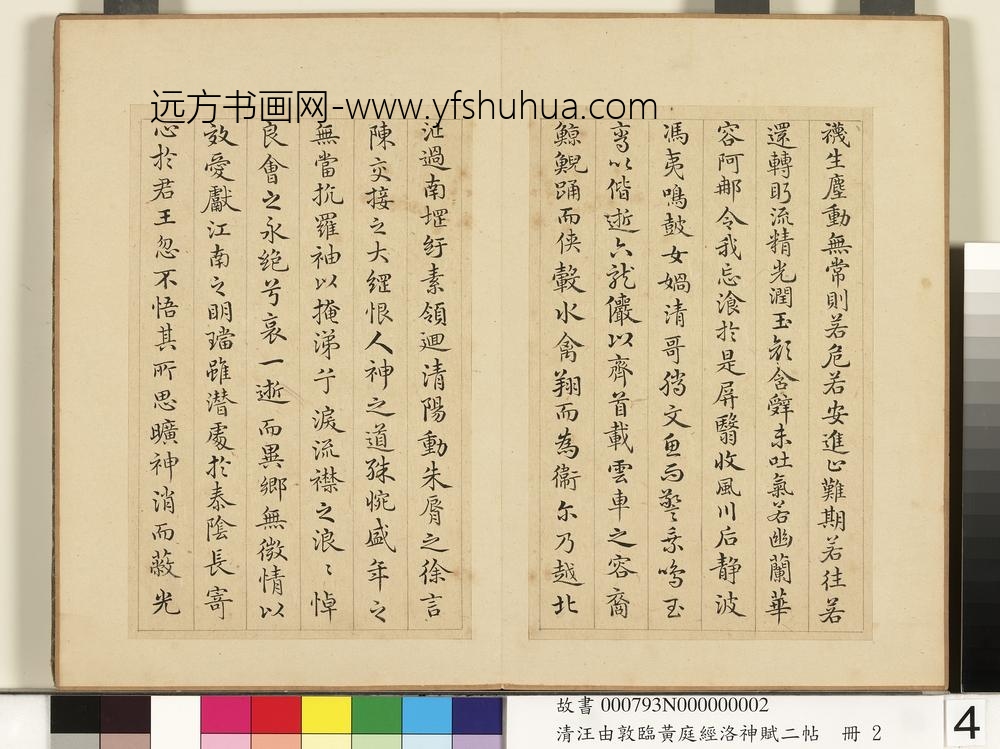 远方书画网-www.yfshuhua.com
襪生塵動無常則若危若安進止難期若往若
還轉盼流精光潤玉顏含辭未吐氣若幽蘭華
容阿那令我忘飡於是屏翳收風川后静波
馮夷鳴鼓女媧清哥騰文魚而警乗鳴玉
鸞以偕逝六龍儼以齊首載雲車之容裔
鯨鯢踊而侠轂水禽翔而為衛尔乃越北
沚過南堽紆素領迴清陽動朱脣之徐言
陳交接之大綱恨人神之道殊惋盛年之
無當抗羅袖以掩涕兮淚流襟之浪〻悼
良會之永绝兮哀一逝而異鄉無微情以
效愛獻江南之明璫雖潜處於泰陰長寄
心於君王忽不悟其所思曠神消而蔽光
故書 000793N000000002
清汪由敦臨黃庭經洛神賦二帖 冊 2
4